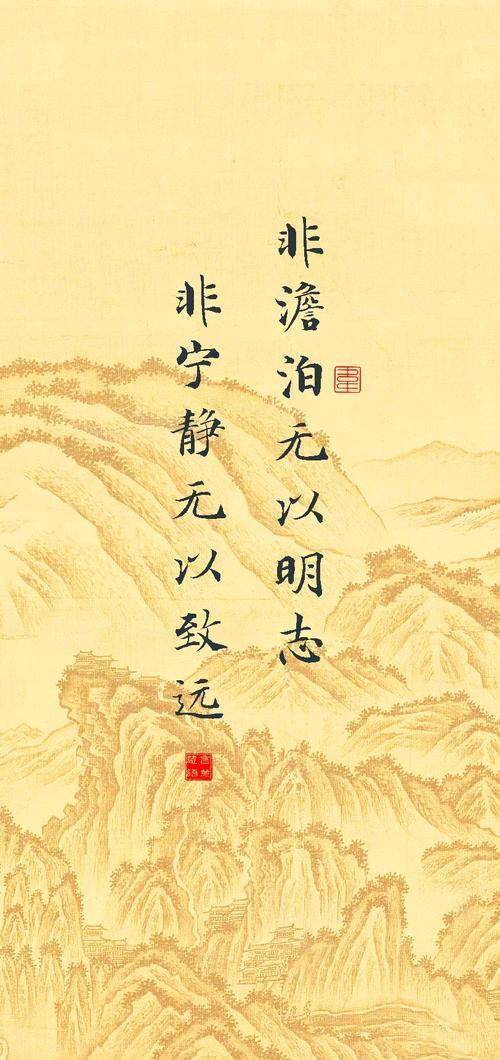 非澹泊无以明志
非宁静无以致远